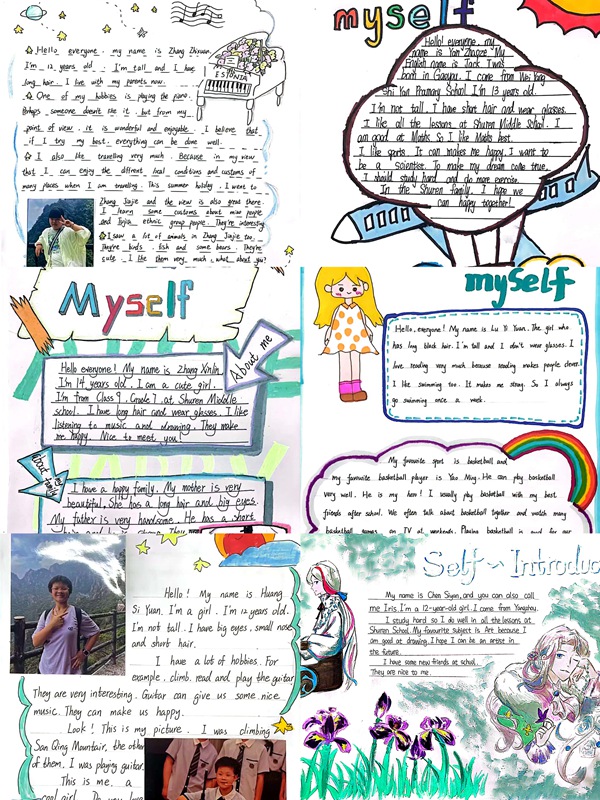 Hello everyone, my name is Zhang Zhixuan.
I'm 12 years old. I'm tall and I have
long hair. I live with my parents now.
One of my hobbies is playing the piano.
Perhaps someone doesn't like it, but from my
point of view, it is wonderful and enjoyable. I believe that
if I try my best, everything can be done well.
I also like travelling very much. Because in my view
that I can enjoy the different local conditions and customs of
many places when I am traveling. This summer holiday, I went to
Zhang Jiajie and the view is also great there.
I learn some customs about miao people
and Tujia ethnic group people. They're interesting.
I saw a lot of animals in Zhang Jiajie too.
They're birds, fish and some bears. They're
cute. I like them very much, what about you?
ESTONIA
myself
Hello! everyone, my
name is Yan Zhaoze My
English name is Jack I was
born in Gaoyou. I come from Wei Yang
Shi Yan Praimary School. I'm 13 years old.
I'm not tall. I have short hair and wear glasses.
I like all the lessons at Shuren Middle School. I
am good at Maths So I like Maths best.
I like sports. It can makes me happy. I want to
be a scientiser. To make my dream come true,
I should study hard and do more exercise.
In the Shuren Family. I hope we
can happy together!
Myself
About me
Hello everyone! My name is Zhang Xinlin.
I'm 14 years old. I am a cute girl.
I'm from Class 9, Grade 7 at Shuren Middle
school. I have long hair and wear glasses. I like
listening to music and drawing. They make
me happy. Nice to meet you!
About my family
I have a happy family. My mother is very
beautiful. She has a long hair and big eyes.
My father is very handsome. He has a short
mySelf
Hello, everyone! My name is Lu Yi Yuan. The girl who
has long black hair. I'm tall and I don't wear glasses. I
love reading very much because reading makes people clever.
I like swimming too. It makes me strong. So I always
go swimming once a week.
My favourite sport is basketball and
my favourite basketball player is Yao Ming. He can play basketball
very well. He is my hero! I usually play basketball with my best
friends after school. We often talk about basketball together and watch many
basketball games on TV at weekends. Playing basketball is good for our
Hello! My name is Huang
Si Yuan. I'm a girl. I'm 12 years old.
I'm not tall. I have big eyes, small nose
and short hair.
I have a lot of hobbies. For
example, climb, read and play the guitar
They are very interesting. Guitar can give us some nice
music. They can make us happy.
Look! This is my picture. I was climbing
San Qing Mountain, the other
of them. I was playing guitar.
This is me, a
cool girl. Do you
Self-Introduc
My name is Chen Siyan, and you can also call
me Iris. I'm a 12-year-old girl. I come from Yangzhou.
I study hard so I do well in all the lessons at
Shuren School. My favourite subject is Art because I
am good at drawing. I hope I can be an artist in
the future.
I have some new friends at school.
They are nice to me.